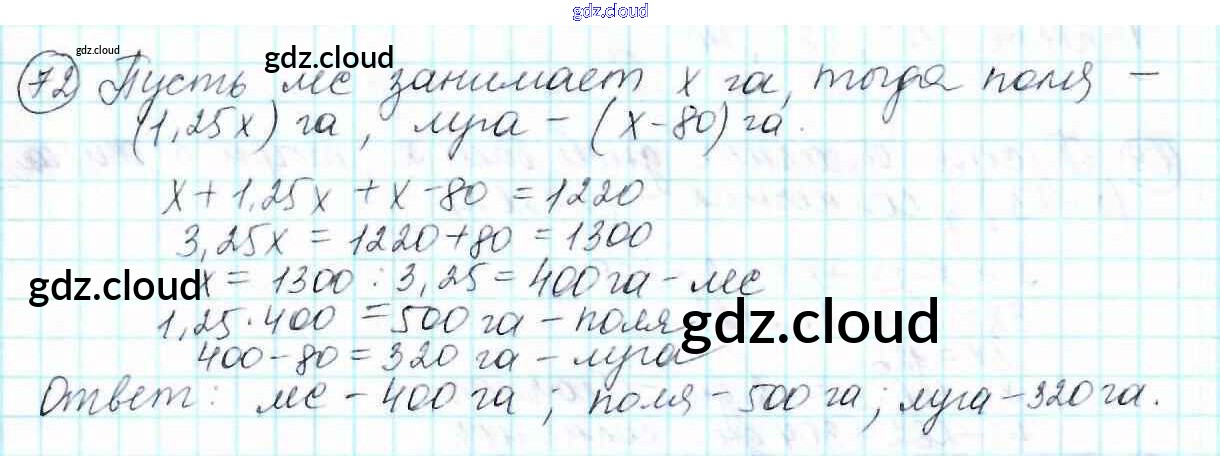 gdz.cloud
gdz.cloud
gdz.cloud
72 Пусть лес занимает x га, тогда поля –
(1,25x) га, луга – (x-80) га.
x + 1,25x + x - 80 = 1220
3,25x = 1220+80 = 1300
gdz.cloud
x = 1300 : 3,25 = 400 га – лес
1,25·400 = 500 га – поля
gdz.cloud
400-80 = 320 га – луга
Ответ: лес – 400 га; поля – 500 га; луга – 320 га.